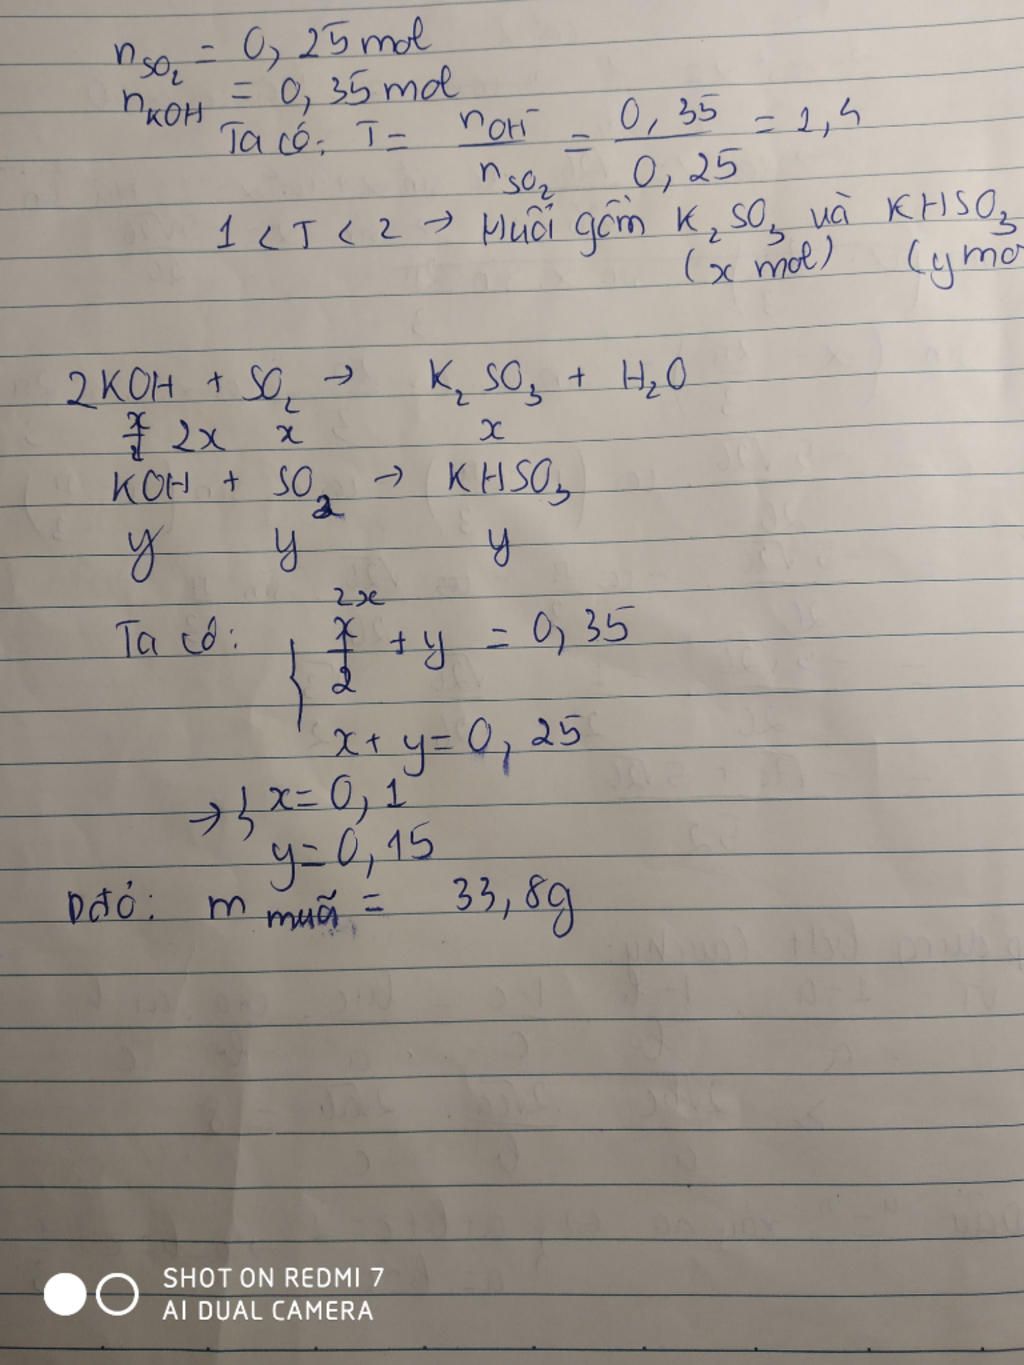 nSO₂ = 0, 25 mol
nKOH = 0, 35 mol
Ta có: T = nOH⁻ / nSO₂ = 0, 35 / 0, 25 = 1,4
1 < T < 2 → Muối gồm K₂SO₃ và KHSO₃
(x mol) (y mo
2KOH + SO₂ → K₂SO₃ + H₂O
2x x x
KOH + SO₂ → KHSO₃
y y y
2x
Ta có: { x/2 + y = 0, 35
x + y = 0, 25
→ { x = 0, 1
y = 0, 15
Dđó: m muối = 33, 8g
SHOT ON REDMI 7
AI DUAL CAMERA